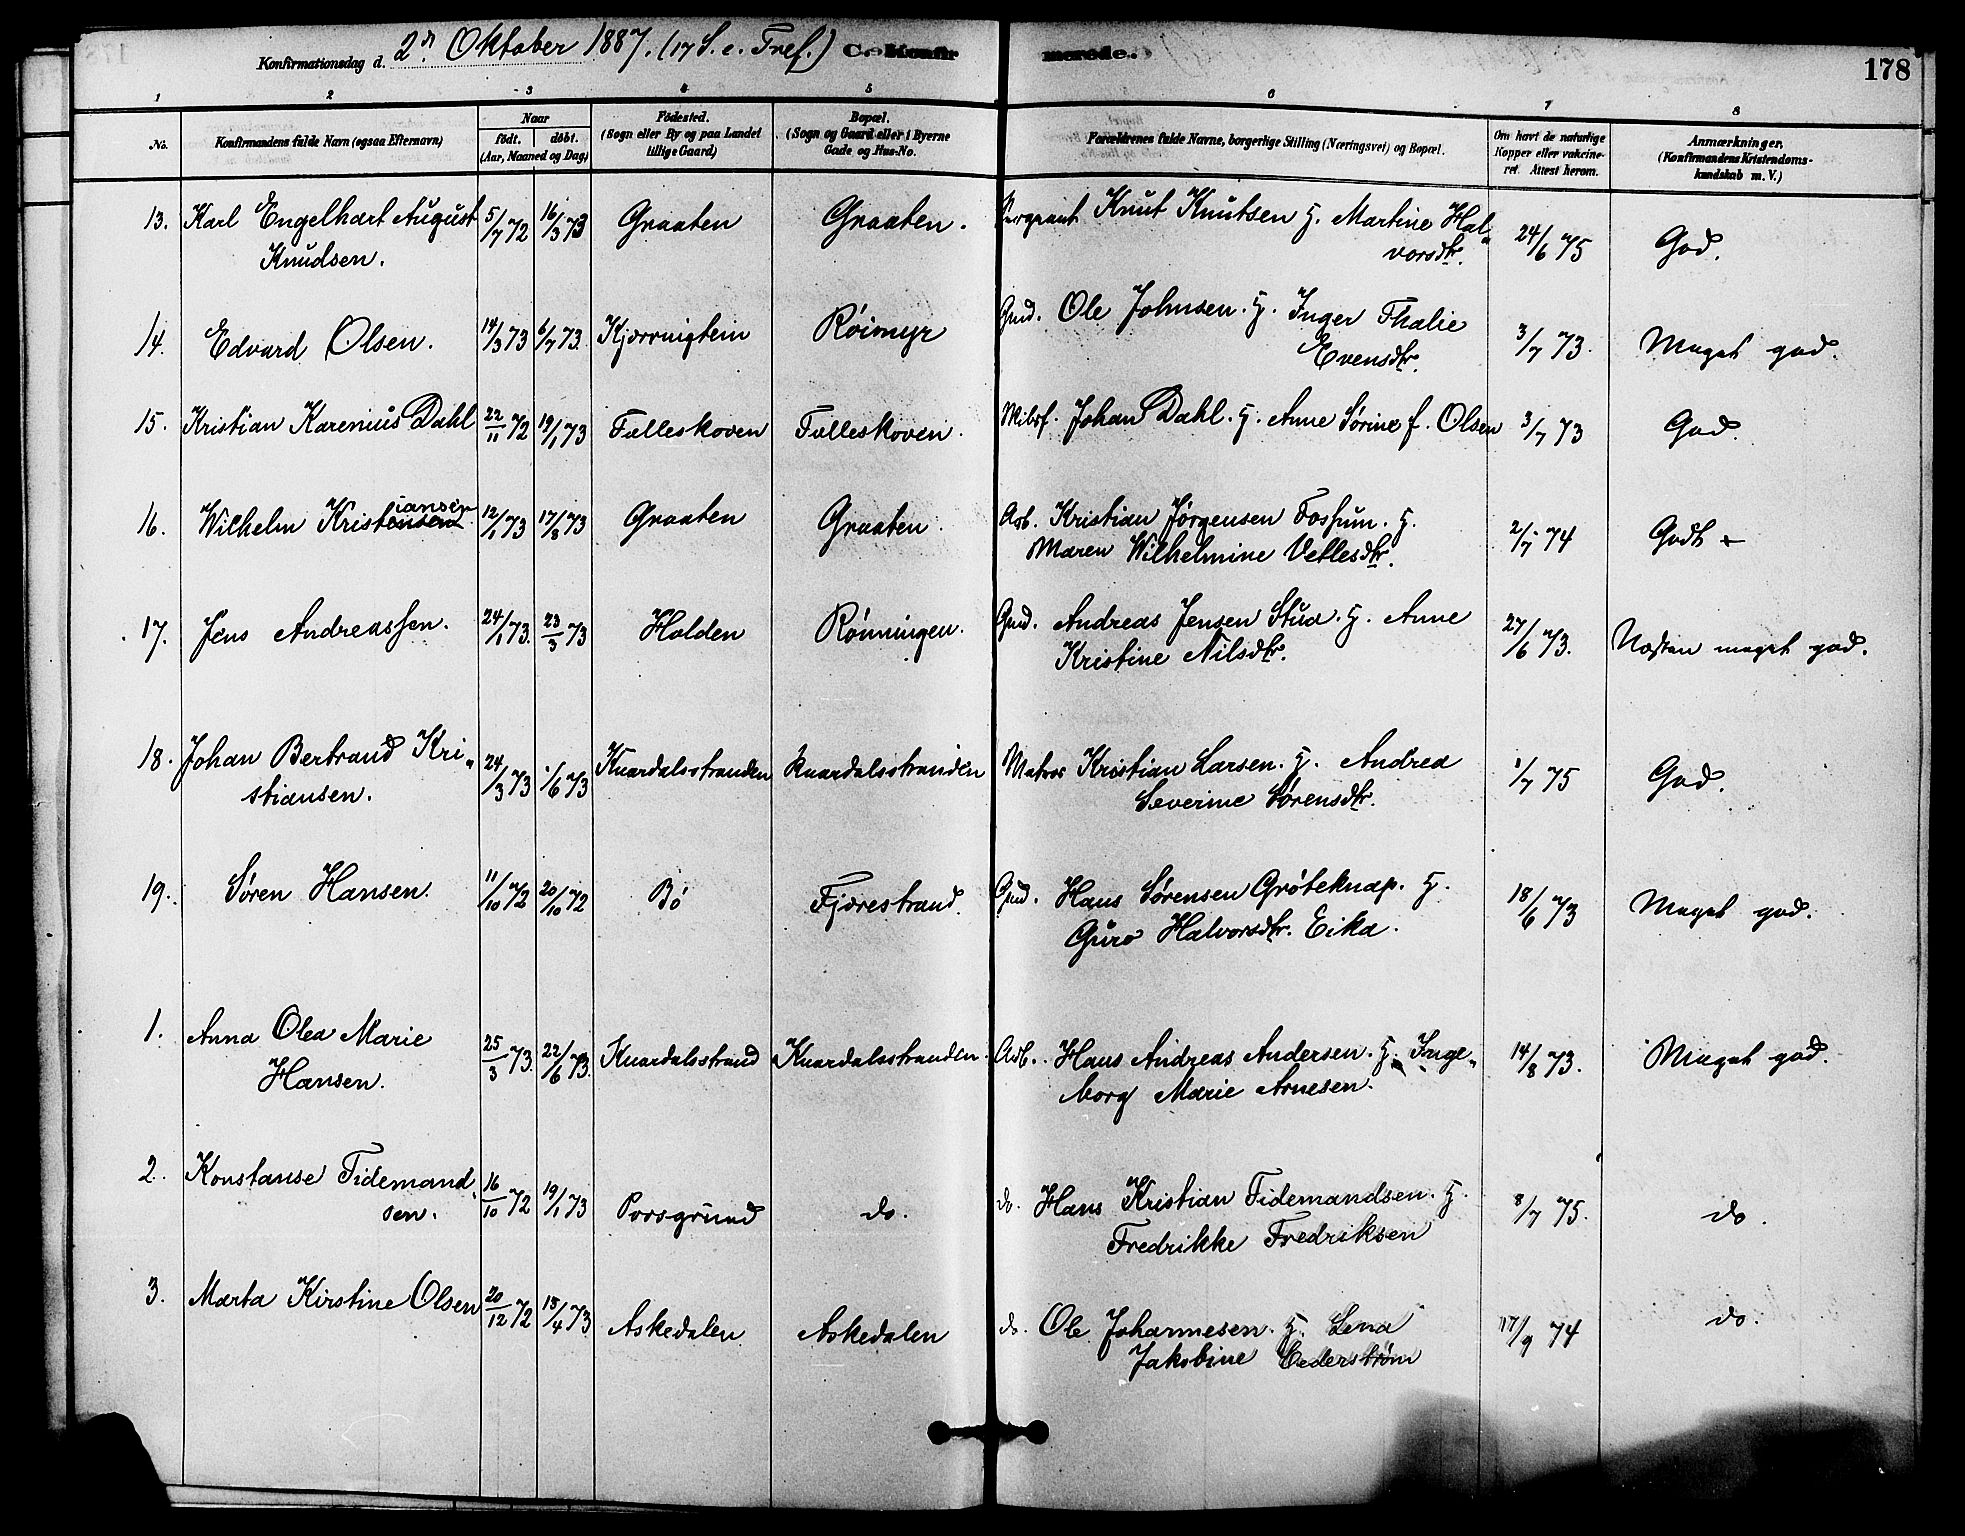 Konfirmationsdag d. 2den Oktober 1887. (17 S. e. Tref.) Konfirmerede. 178
1 2 3 4 5 6 7 8
No. Konfirmandens fulde Navn (ogsaa Efternavn) Naar født. døbt. (Aar, Maaned og Dag) Fødested. (Sogn eller By og paa Landet tillige Gaard) Bopæl. (Sogn og Gaard eller i Byerne Gade og Hus-No. Forældrenes fulde Navne, borgerlige Stilling (Næringsvei) og Bopæl. Om havt de naturlige Kopper eller vakcineret. Attest herom. Anmærkninger. (Konfirmandens Kristendomskundskab m. V.)
13. Karl Engelhart August 5/7 72 16/3 73 Graaten Graaten. Sergeant Knut Knutsen H. Martine Hal-
Knudsen. vorsdtr. 24/6 75 God.
14. Edvard Olsen. 14/3 73 6/7 73. Røimyr Gmd. Ole Johnsen. H. Inger Thalie
Evensdtr. 3/7 73. Meget god.
15. Kristian Karenius Dahl 22/11 72 19/1 73 Falleskoven Falleskoven. Johan Dahl. H. Anne Sørine f. Olsen 3/7 73 God.
16. Wilhelm Kristensen iansen 12/1 73 17/8 73 Graaten Graaten. Arb. Kristian Jørgensen Fossum. H.
Maren Wilhelmine Vetlesdtr. 2/7 74 Godt
17. Jens Andreassen. 24/1 73. 23/3 73 Holden Rønningen. Gmd. Andreas Jensen Stua. H. Anne
Kristine Nilsdtr. 27/6 73. Næsten meget god.
18. Johan Bertrand Kri- 24/3 73 1/6 73 Knardalsstranden Knardalsstranden Matros Kristian Larsen. H. Andrea
stiansen. Severine Sørensdtr. 1/7 75 God.
19. Søren Hansen. 11/10 72 20/10 72 Bø Fjærestrand. Gmd. Hans Sørensen Grøteknap. H.
Guro Halvorsdtr. Eika. 18/6 73 Meget god.
1. Anna Olea Marie 25/3 73. 22/6 73. Knardalsstrand Knardalsstranden. Arb. Hans Andreas Andersen. H. Inge-
Hansen. borg Marie Arnesen. 14/8 73. Meget god.
2. Konstanse Tidemand- 16/10 72 19/1 73 Porsgrund do. do. Hans Kristian Tidemandsen. H.
sen. Fredrikke Fredriksen 8/7 75. do.
3. Marta Kirstine Olsen 20/12 72 18/4 73 Askedalen Askedalen do. Ole Johannesen. H. Lena
Jakobine Cederstrøm 17/9 74 do.